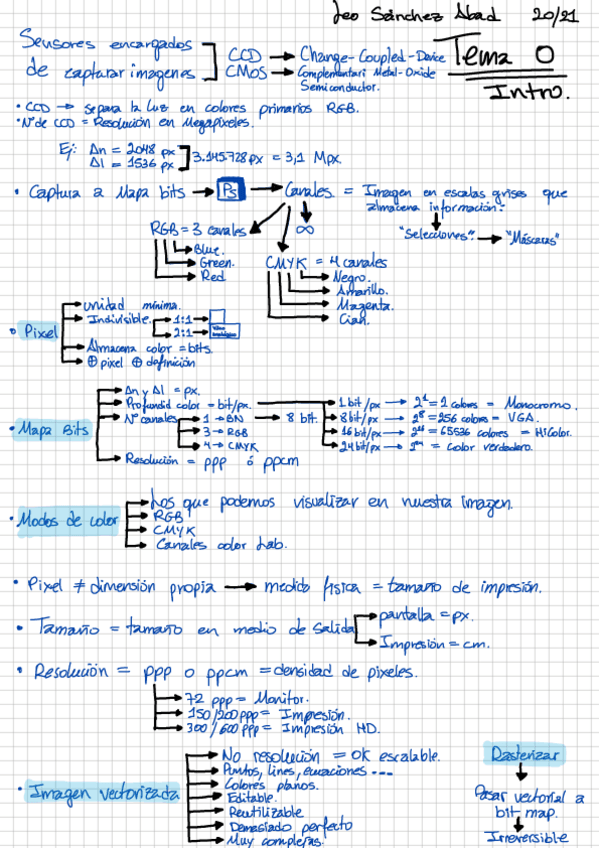 Leo Sánchez Abad 20/21
Tema 0
Intro.
Sensores encargados de capturar imagenes
CCD → Change-Coupled-Device
CMOS → Complementari Metal-Oxide Semiconductor.
• CCD → separa la luz en colores primarios RGB.
• Nº de CCD = Resolución en Megapíxeles.
Ej: Δn = 2048 px
Δl = 1536 px
3.145.728 px = 3,1 Mpx.
• Captura a Mapa bits → Ps → Canales. = Imagen en escalas grises que almacena información:
"Selecciones". → "Máscaras"
RGB = 3 canales
Blue.
Green.
Red
∞
CMYK = 4 canales
Negro.
Amarillo.
Magenta.
Cian.
• Pixel
unidad mínima.
Indivisible.
1:1 →
2:1 →
Almacena color = bits.
⊕ pixel ⊕ definición
• Mapa Bits
Δn y Δl = px.
Profundid color = bit/px.
1 bit/px → 2¹ = 2 colores = Monocromo.
8 bit/px → 2⁸ = 256 colores = VGA.
16 bit/px → 2¹⁶ = 65536 colores = HiColor.
24 bit/px → 2²⁴ = Color verdadero.
Nº canales
1 → BN → 8 bit.
3 → RGB
4 → CMYK
Resolución = ppp ó ppcm
• Modos de color
Los que podemos visualizar en nuestra imagen.
RGB
CMYK
Canales color Lab.
• Pixel ≠ dimensión propia → medida física = tamaño de impresión.
• Tamaño = tamaño en medio de salida
pantalla = px.
Impresión = cm.
• Resolución = ppp o ppcm = densidad de pixeles.
72 ppp = Monitor.
150/200 ppp = Impresión.
300/600 ppp = Impresión HD.
• Imagen vectorizada
No resolución = OK escalable.
Puntos, lines, ecuaciones ...
Colores planos.
Editable.
Reutilizable
Demasiado perfecto
Muy complejas.
Rasterizar
Pasar vectorial a bit map.
Irreversible